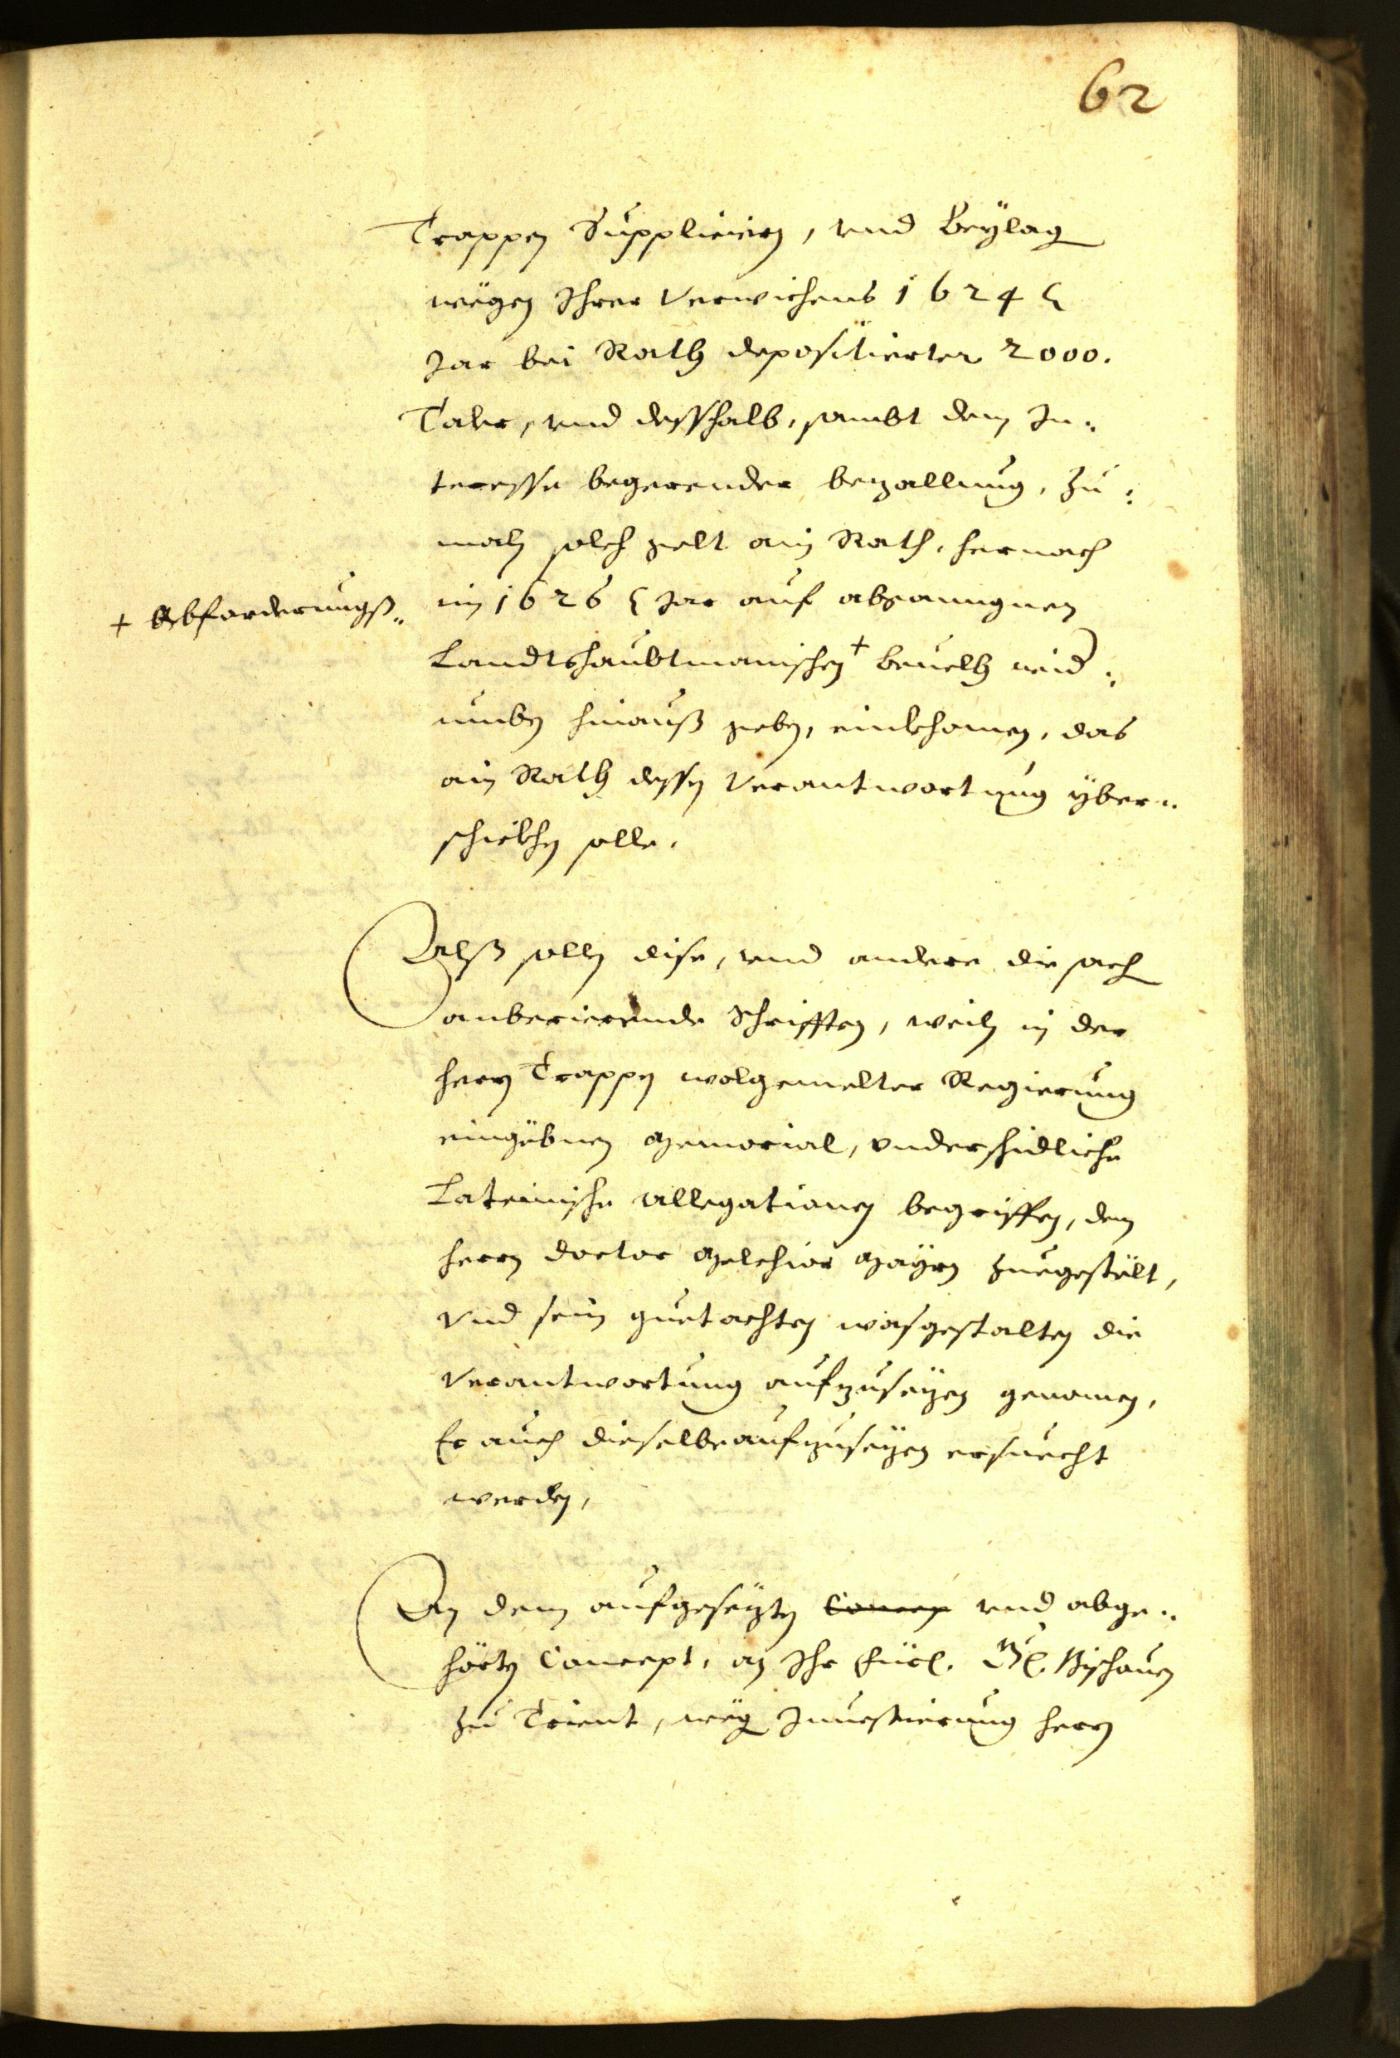 62
Trappen Supplicirn, vnd Beylag
wëgen Ihrer Verwichens 1624
Jar bei Rath depositierter 2000.
Taler, vnd desshalb, sambt dem In:
teresse begerender bezallung, zu:
maln solch gelt ain Rath, hernach
+ Abforderungß„
im 1626 Jar auf abganngnen
Landtshaubtmanischen + beuelh wid:
rumben hinauß geben, einkhomen, das
ain Rath dessen Verantwortung yber„
schickhen solle.
Alß solln dise, vnd andere die sach
anberierende Schrifften, weiln in der
herrn Trappen wolgemelter Regierung
eingëbnen Memorial, vnderschidliche
Lateinische allegationen begriffen, dem
herrn doctor Melchior Mayrn zuegestëlt,
Vnd sein guetachten wasgestalten die
Verantwortung aufzusëzen genomen,
Er auch dieselbe aufzusëzen ersuecht
werden,
An dem aufgesëzten Concep vnd abge„
hörten Concept, an Ihr Fürl. Gl. Bischouen
zu Trient, wëg Inuestierung herrn